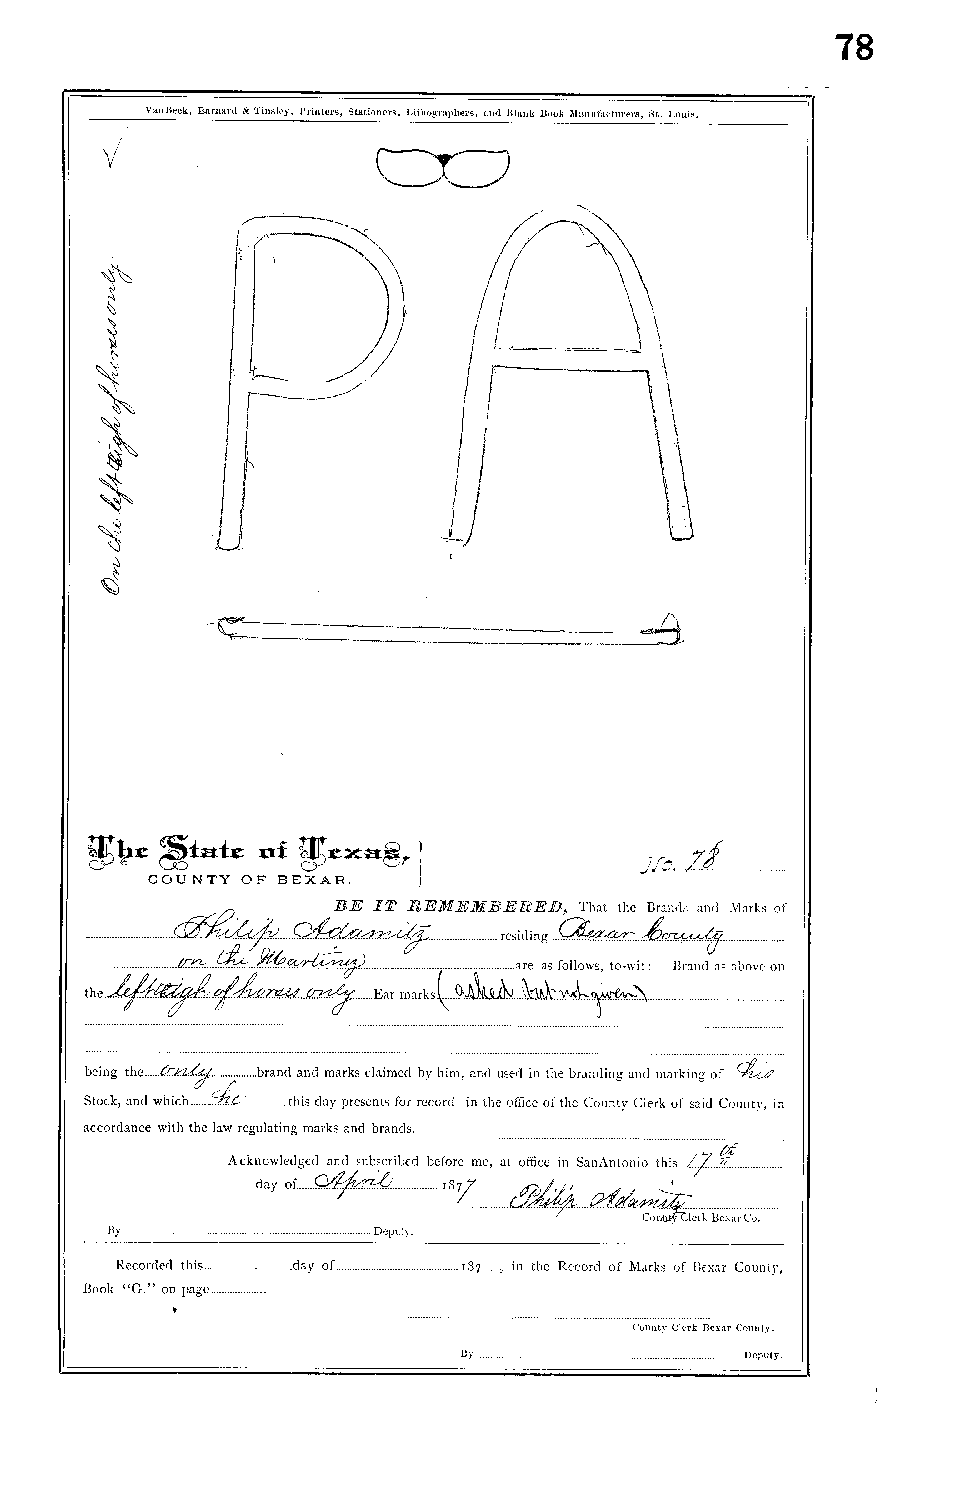 78
VanBeck, Barnard & Tinsley, Printers, Stationers, Lithographers, and Blank Book Manufacturers, St. Louis.
On the left teigh of horses only
P A
The State of Texas,
COUNTY OF BEXAR.
No. 78
BE IT REMEMBERED, That the Brands and Marks of
Philip Adamitz residing Bexar County
on the Martinez are as follows, to-wit: Brand as above on
the left teigh of horses only Ear marks (asked but not given)
being the only brand and marks claimed by him, and used in the branding and marking of his
Stock, and which he this day presents for record in the office of the County Clerk of said County, in
accordance with the law regulating marks and brands.
Acknowledged and subscribed before me, at office in SanAntonio this 17th
day of April 1877 Philip Adamitz
County Clerk Bexar Co.
By Deputy.
Recorded this day of 187 , in the Record of Marks of Bexar County,
Book "G." on page
County Clerk Bexar County.
By Deputy.